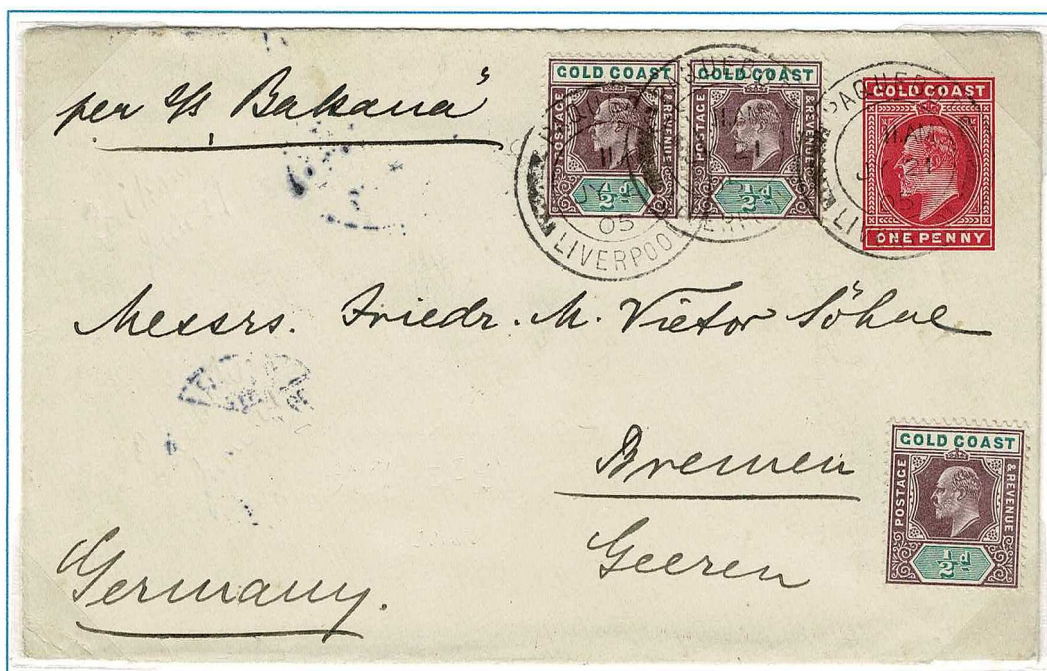 per s/s "Bakana"
GOLD COAST
POSTAGE & REVENUE
½d
GOLD COAST
POSTAGE & REVENUE
½d
GOLD COAST
ONE PENNY
PAQUEBOT
11 AM
JY 21
05
LIVERPOOL
Messrs. Friedr. M. Vietor Söhne
Bremen
Geeren
Germany.
GOLD COAST
POSTAGE & REVENUE
½d